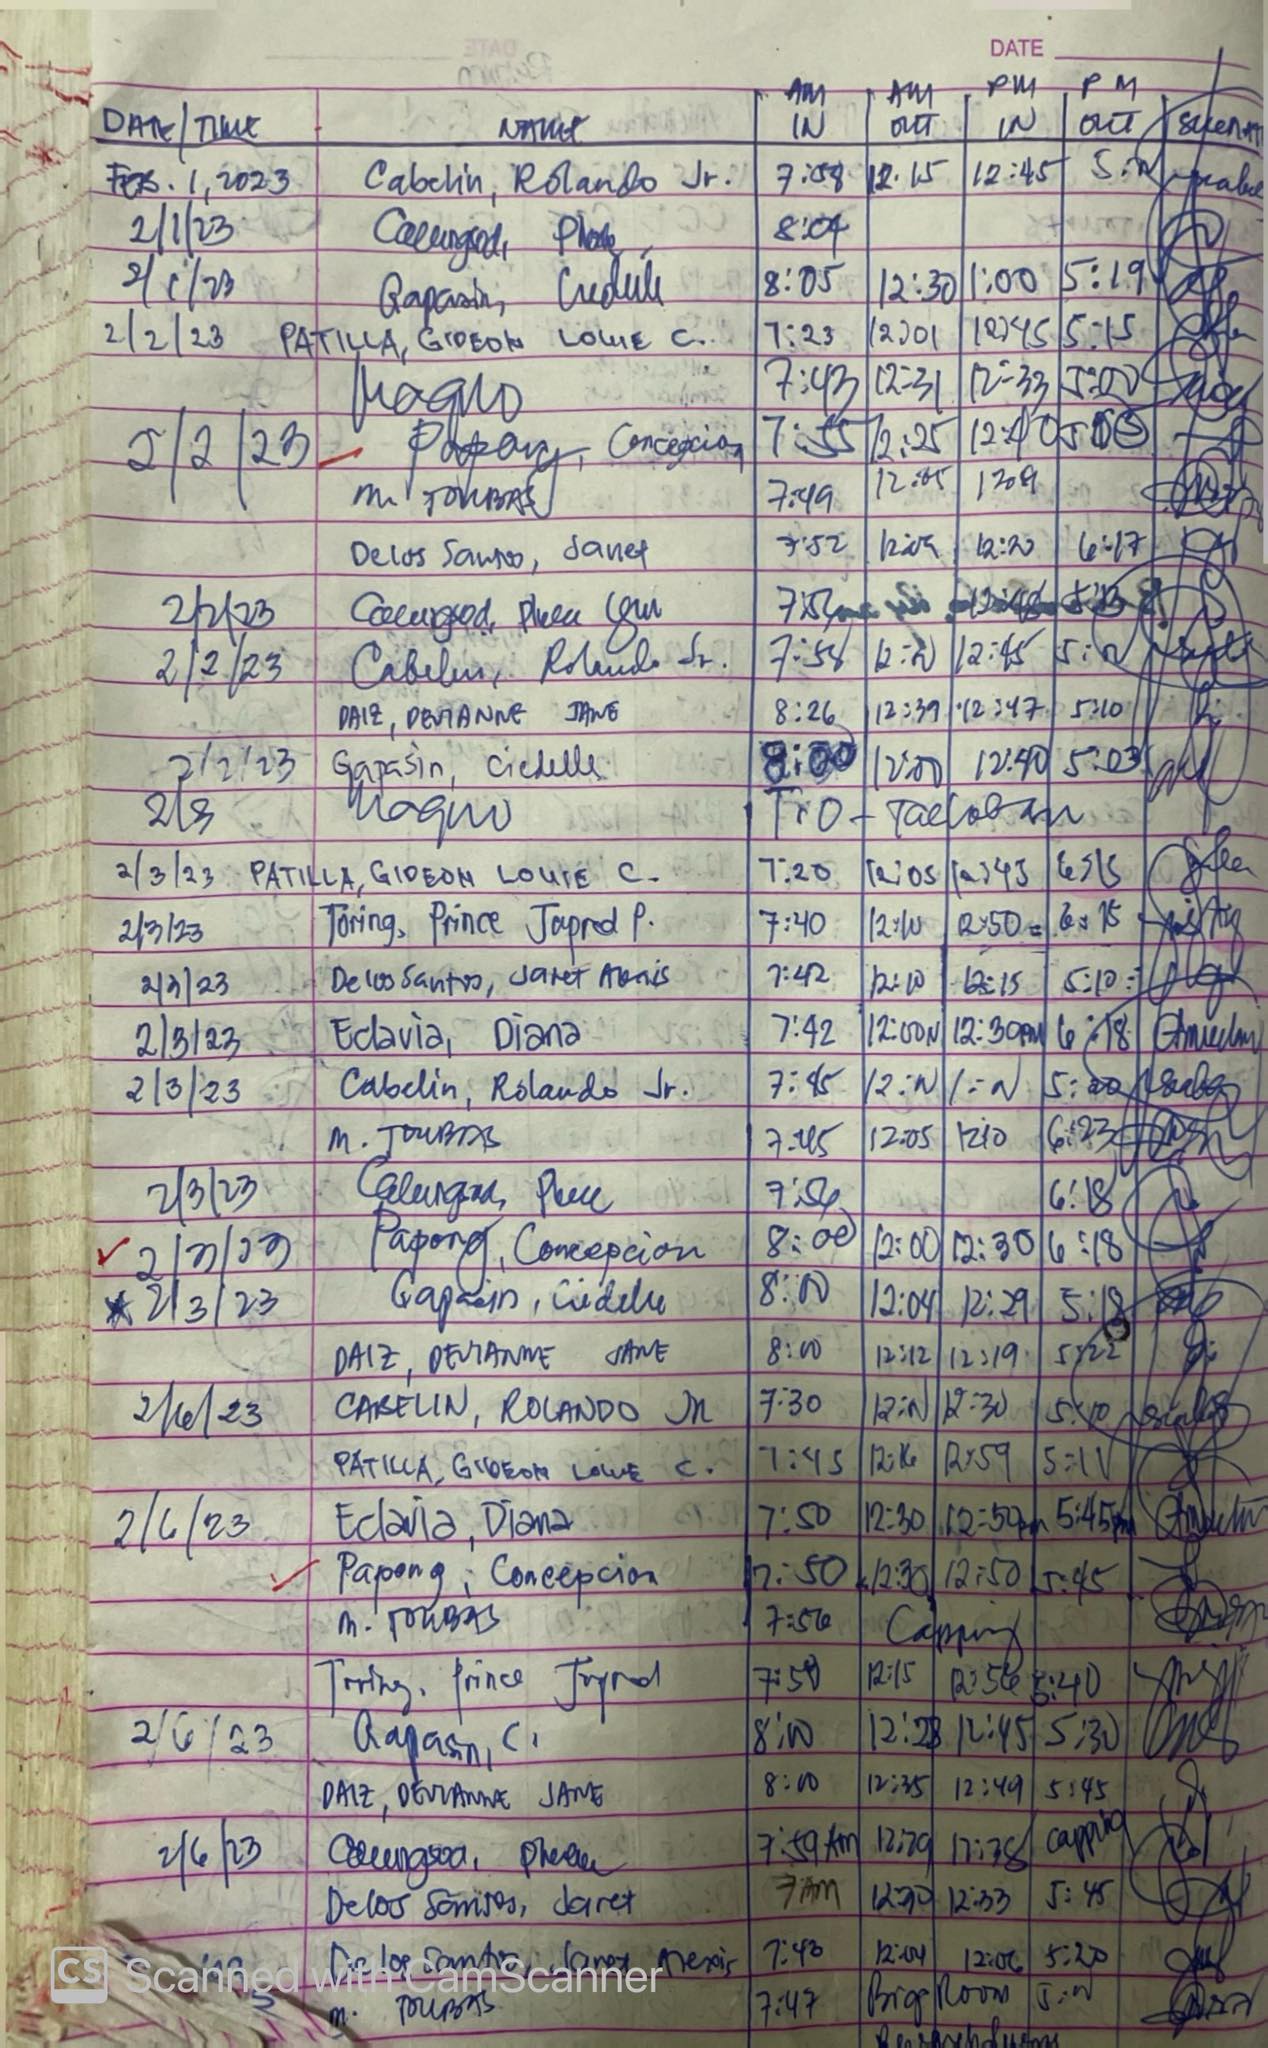 DATE
AM AM PM PM
DATE/TIME NAME IN OUT IN OUT
FEB. 1, 2023 Cabelin, Rolando Jr. 7:58 12:15 12:45 5:N
2/1/23 8:04
2/1/23 Gapasin, 8:05 12:30 1:00 5:19
2/2/23 PATILLA, GIDEON LOUIE C. 7:23 12:01 12:45 5:15
Magno 7:43 12:31 12:33 5:00
2/2/23 Papong, Concepcion 7:55 12:25 12:40
M. TOUBAS 7:49 12:05 1209
Delos Santos, Janet 7:52 12:09 12:20 6:17
2/2/23 12:48
2/2/23 Cabelin, Rolando Jr. 7:58 12:N 12:45 5:N
DAIZ, DEVIANNE JANE 8:26 12:39 12:47 5:10
2/2/23 Gapasin, Ciedelle 8:00 12:00 12:40 5:03
2/3 Magno T.O - Tacloban
2/3/23 PATILLA, GIDEON LOUIE C. 7:20 12:05 12:45 6:15
2/3/23 Toring, Prince Japred P. 7:40 12:10 12:50 6:15
2/3/23 Delos Santos, Janet Alexis 7:42 12:10 12:15 5:10
2/3/23 Eclavia, Diana 7:42 12:00N 12:30PM 6:18
2/3/23 Cabelin, Rolando Jr. 7:45 12:N 1:N 5:00
M. TOUBAS 7:45 12:05 1210 6:23
2/3/23 7:56 6:18
2/3/23 Papong, Concepcion 8:00 12:00 12:30 6:18
2/3/23 Gapasin, Ciedelle 8:00 12:04 12:29 5:18
DAIZ, DEVIANNE JANE 8:00 12:12 12:19 5:22
2/6/23 CABELIN, ROLANDO JR 7:30 12:N 12:30 5:10
PATILLA, GIDEON LOUIE C. 7:45 12:16 12:59 5:11
2/6/23 Eclavia, Diana 7:50 12:30 12:50pm 5:45pm
Papong, Concepcion 7:50 12:30 12:50 5:45
M. TOUBAS 7:56 Capping
Toring, Prince Japred 7:58 12:15 12:56 5:40
2/6/23 Gapasin, C. 8:00 12:28 12:45 5:30
DAIZ, DEVIANNE JANE 8:00 12:35 12:49 5:45
2/6/23 7:59 AM 12:29 12:38 capping
Delos Santos, Janet 7AM 12:30 12:33 5:45
Delos Santos, Janet Alexis 7:43 12:04 12:06 5:20
M. TOUBAS 7:47 Room 5:N
CS Scanned with CamScanner